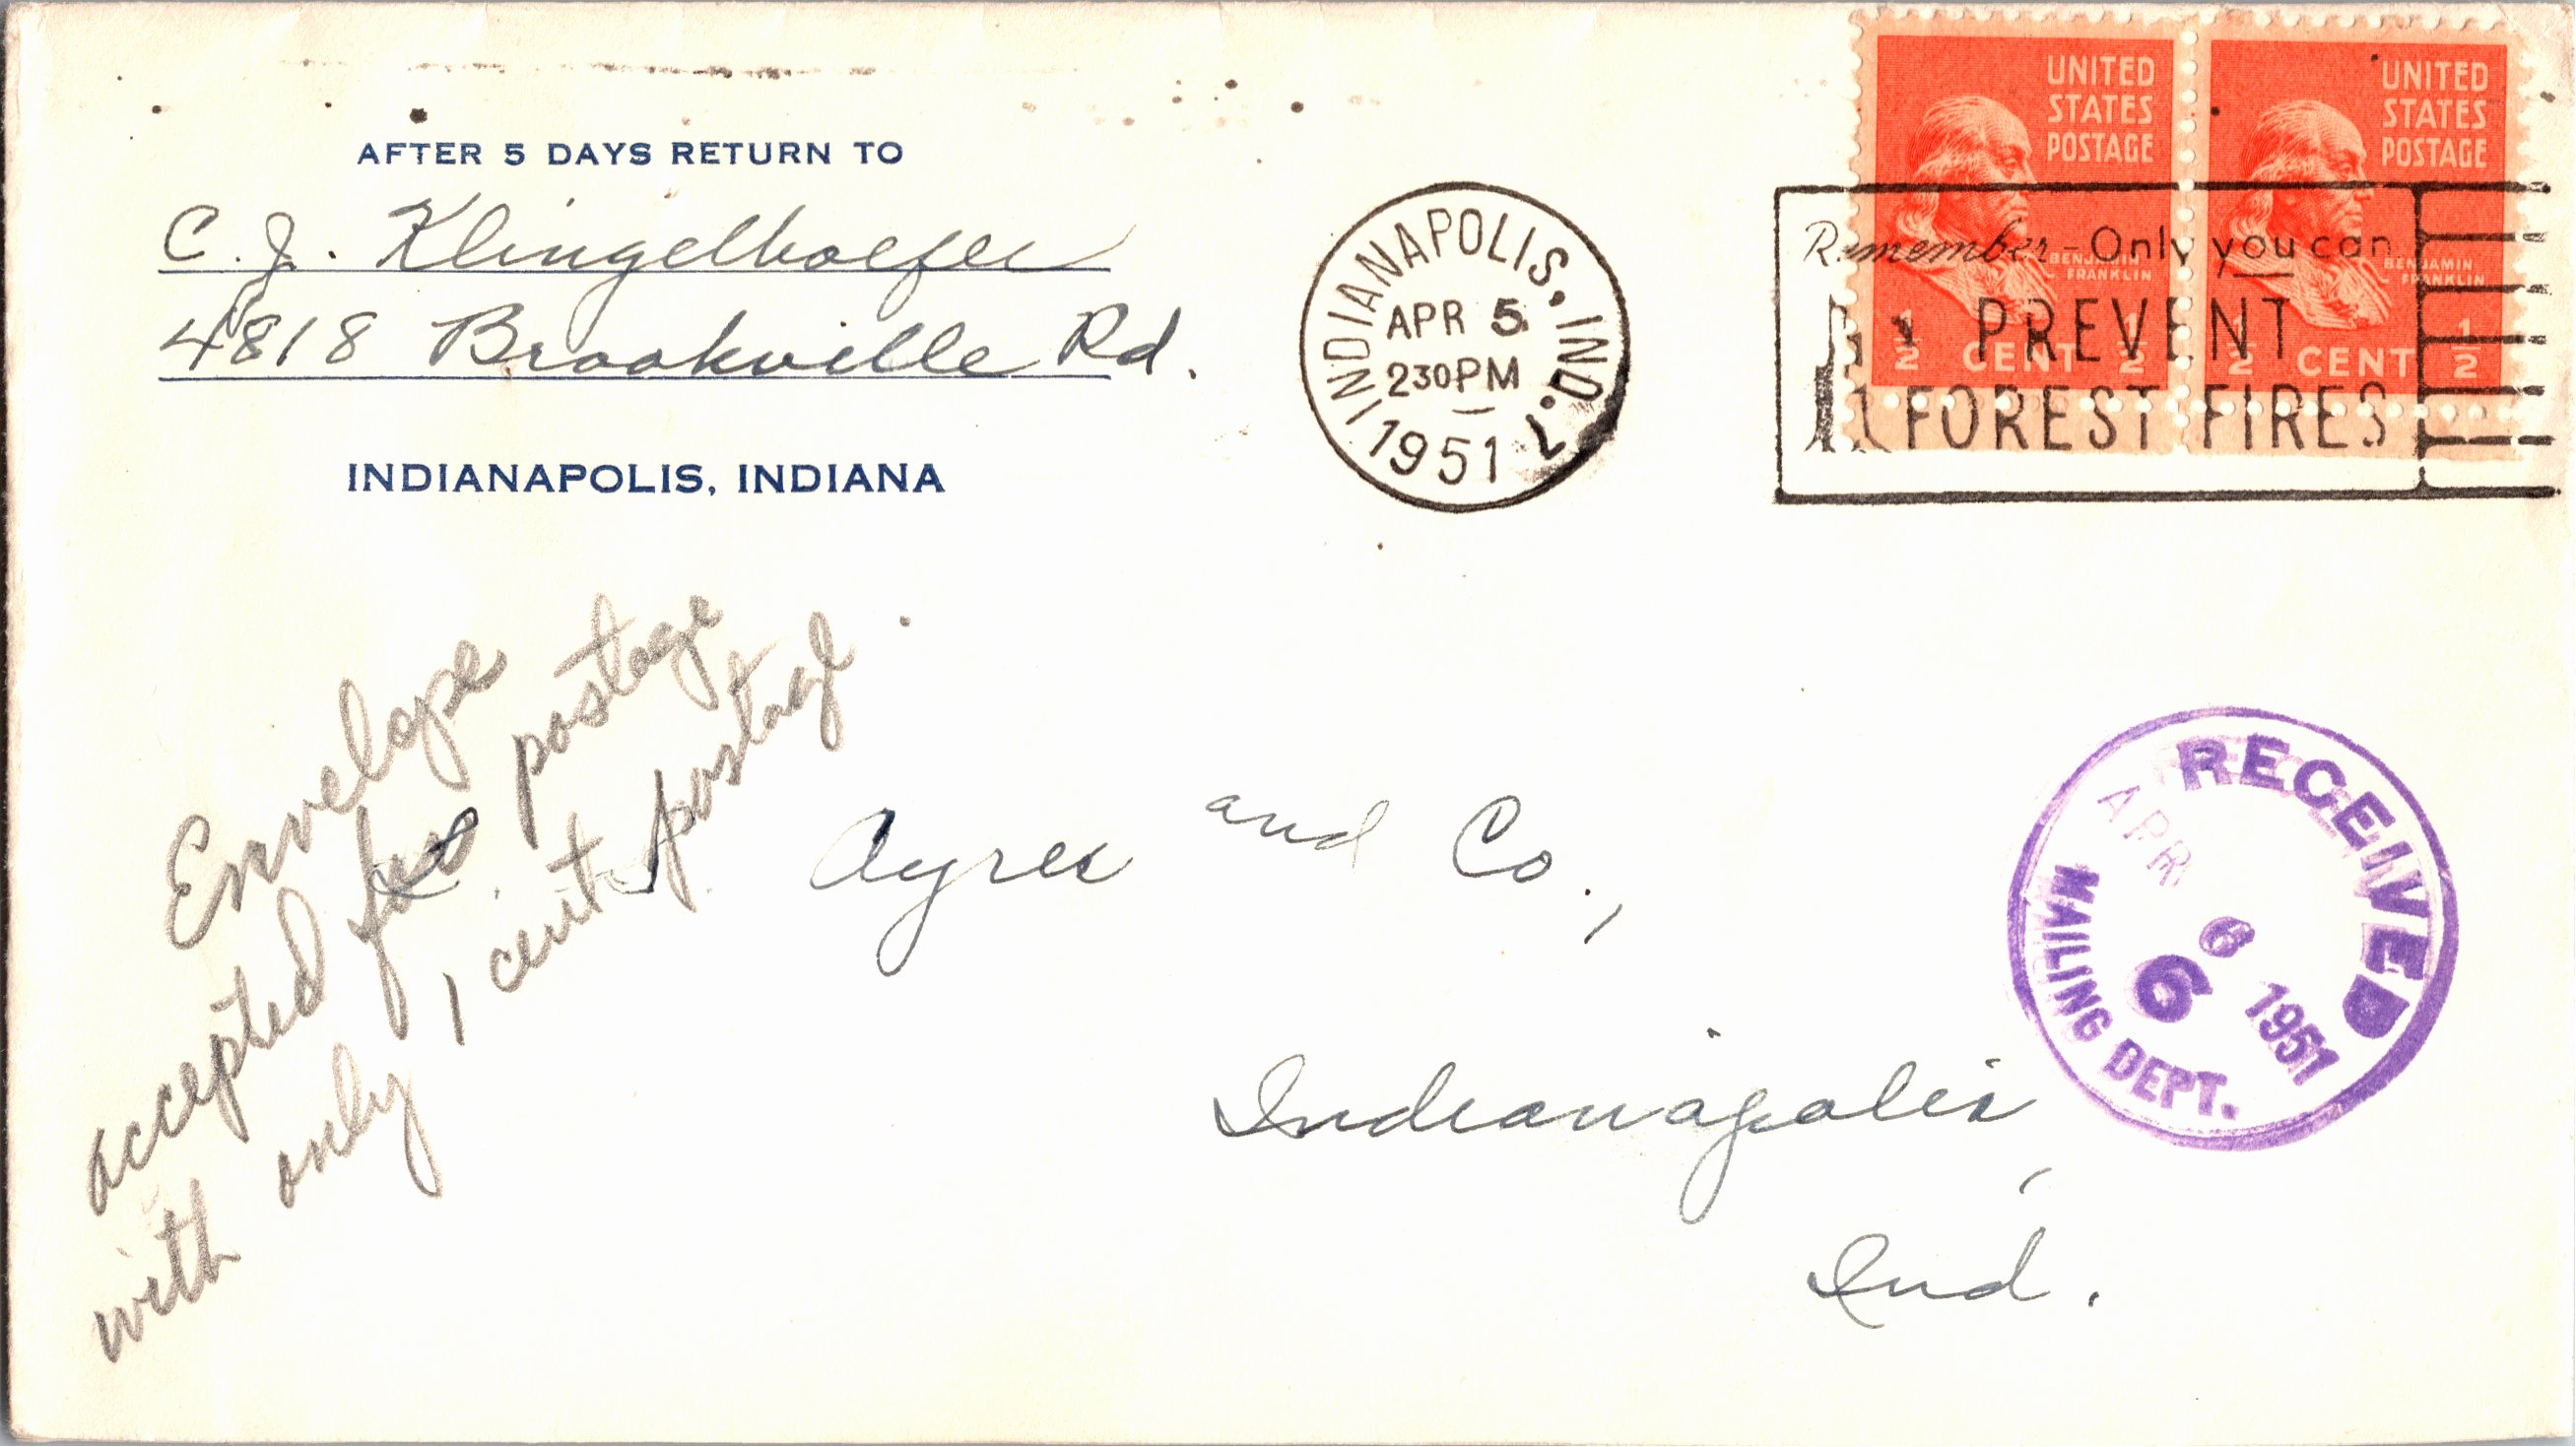 AFTER 5 DAYS RETURN TO
C. J. Klingelhoefer
4818 Brookville Rd.
INDIANAPOLIS, INDIANA
INDIANAPOLIS, IND.
APR 5
230PM
1951
UNITED
STATES
POSTAGE
BENJAMIN
FRANKLIN
1/2 CENT 1/2
UNITED
STATES
POSTAGE
BENJAMIN
FRANKLIN
1/2 CENT 1/2
Remember-Only you can
PREVENT
FOREST FIRES
Envelope
accepted for postage
with only 1 cent postage
L. S. Ayres and Co.,
Indianapolis,
Ind.
RECEIVED
APR 6 1951
6
MAILING DEPT.